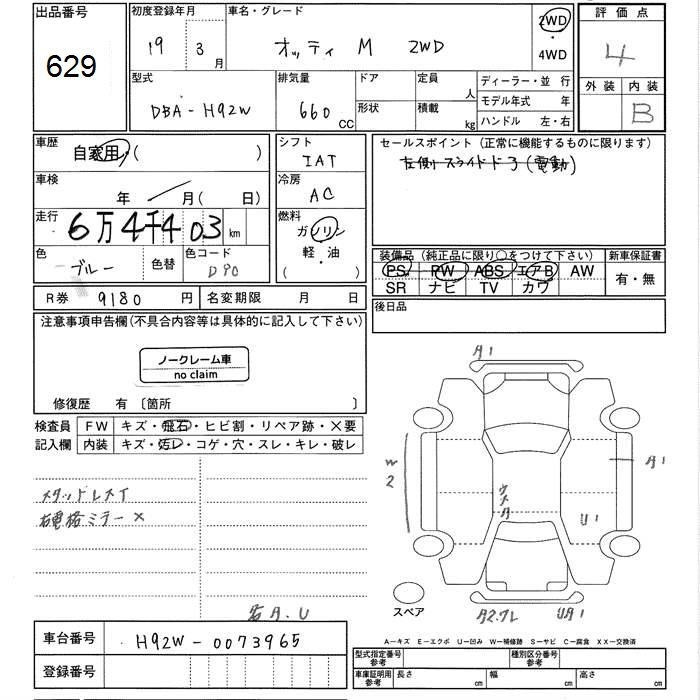 出品番号 初度登録年月 車名・グレード 2WD 評価点
629 19 3月 オッティ M 2WD ・ 4
4WD
型式 排気量 ドア 定員 人 ディーラー・並 行 外装 内装
DBA-H92W 660 CC 形状 積載 kg モデル年式 年 B
ハンドル 左・右
車歴 自家用・( ) シフト IAT セールスポイント (正常に機能するものに限ります)
左側スライドドア(電動)
車検 年 月( 日) 冷房 AC
走行 6万4千403 km 燃料 ガソリン
色 ブルー 色替 色コード D90 (軽・油) 装備品 (純正品に限り○をつけて下さい) 新車保証書
PS PW ABS エアB AW 有・無
SR ナビ TV カワ
R券 9180 円 名変期限 月 日 後日品
注意事項申告欄(不具合内容等は具体的に記入して下さい)
ノークレーム車
no claim
修復歴 有 〔箇所 〕
検査員 FW キズ・飛石・ヒビ割・リペア跡・×要
記入欄 内装 キズ・汚レ・コゲ・穴・スレ・キレ・破レ
A1
W2
A1
U1
スタッドレスT
右電格ミラー×
スペア
A2.
UA1
A.U
A-キズ E-エクボ U-凹み W-補修跡 S-サビ C-腐食 XX-交換済
車台番号 H92W-0073965
型式指定番号 参考 種別区分番号 参考
登録番号
車庫証明用 参考 長さ cm 幅 cm 高さ cm